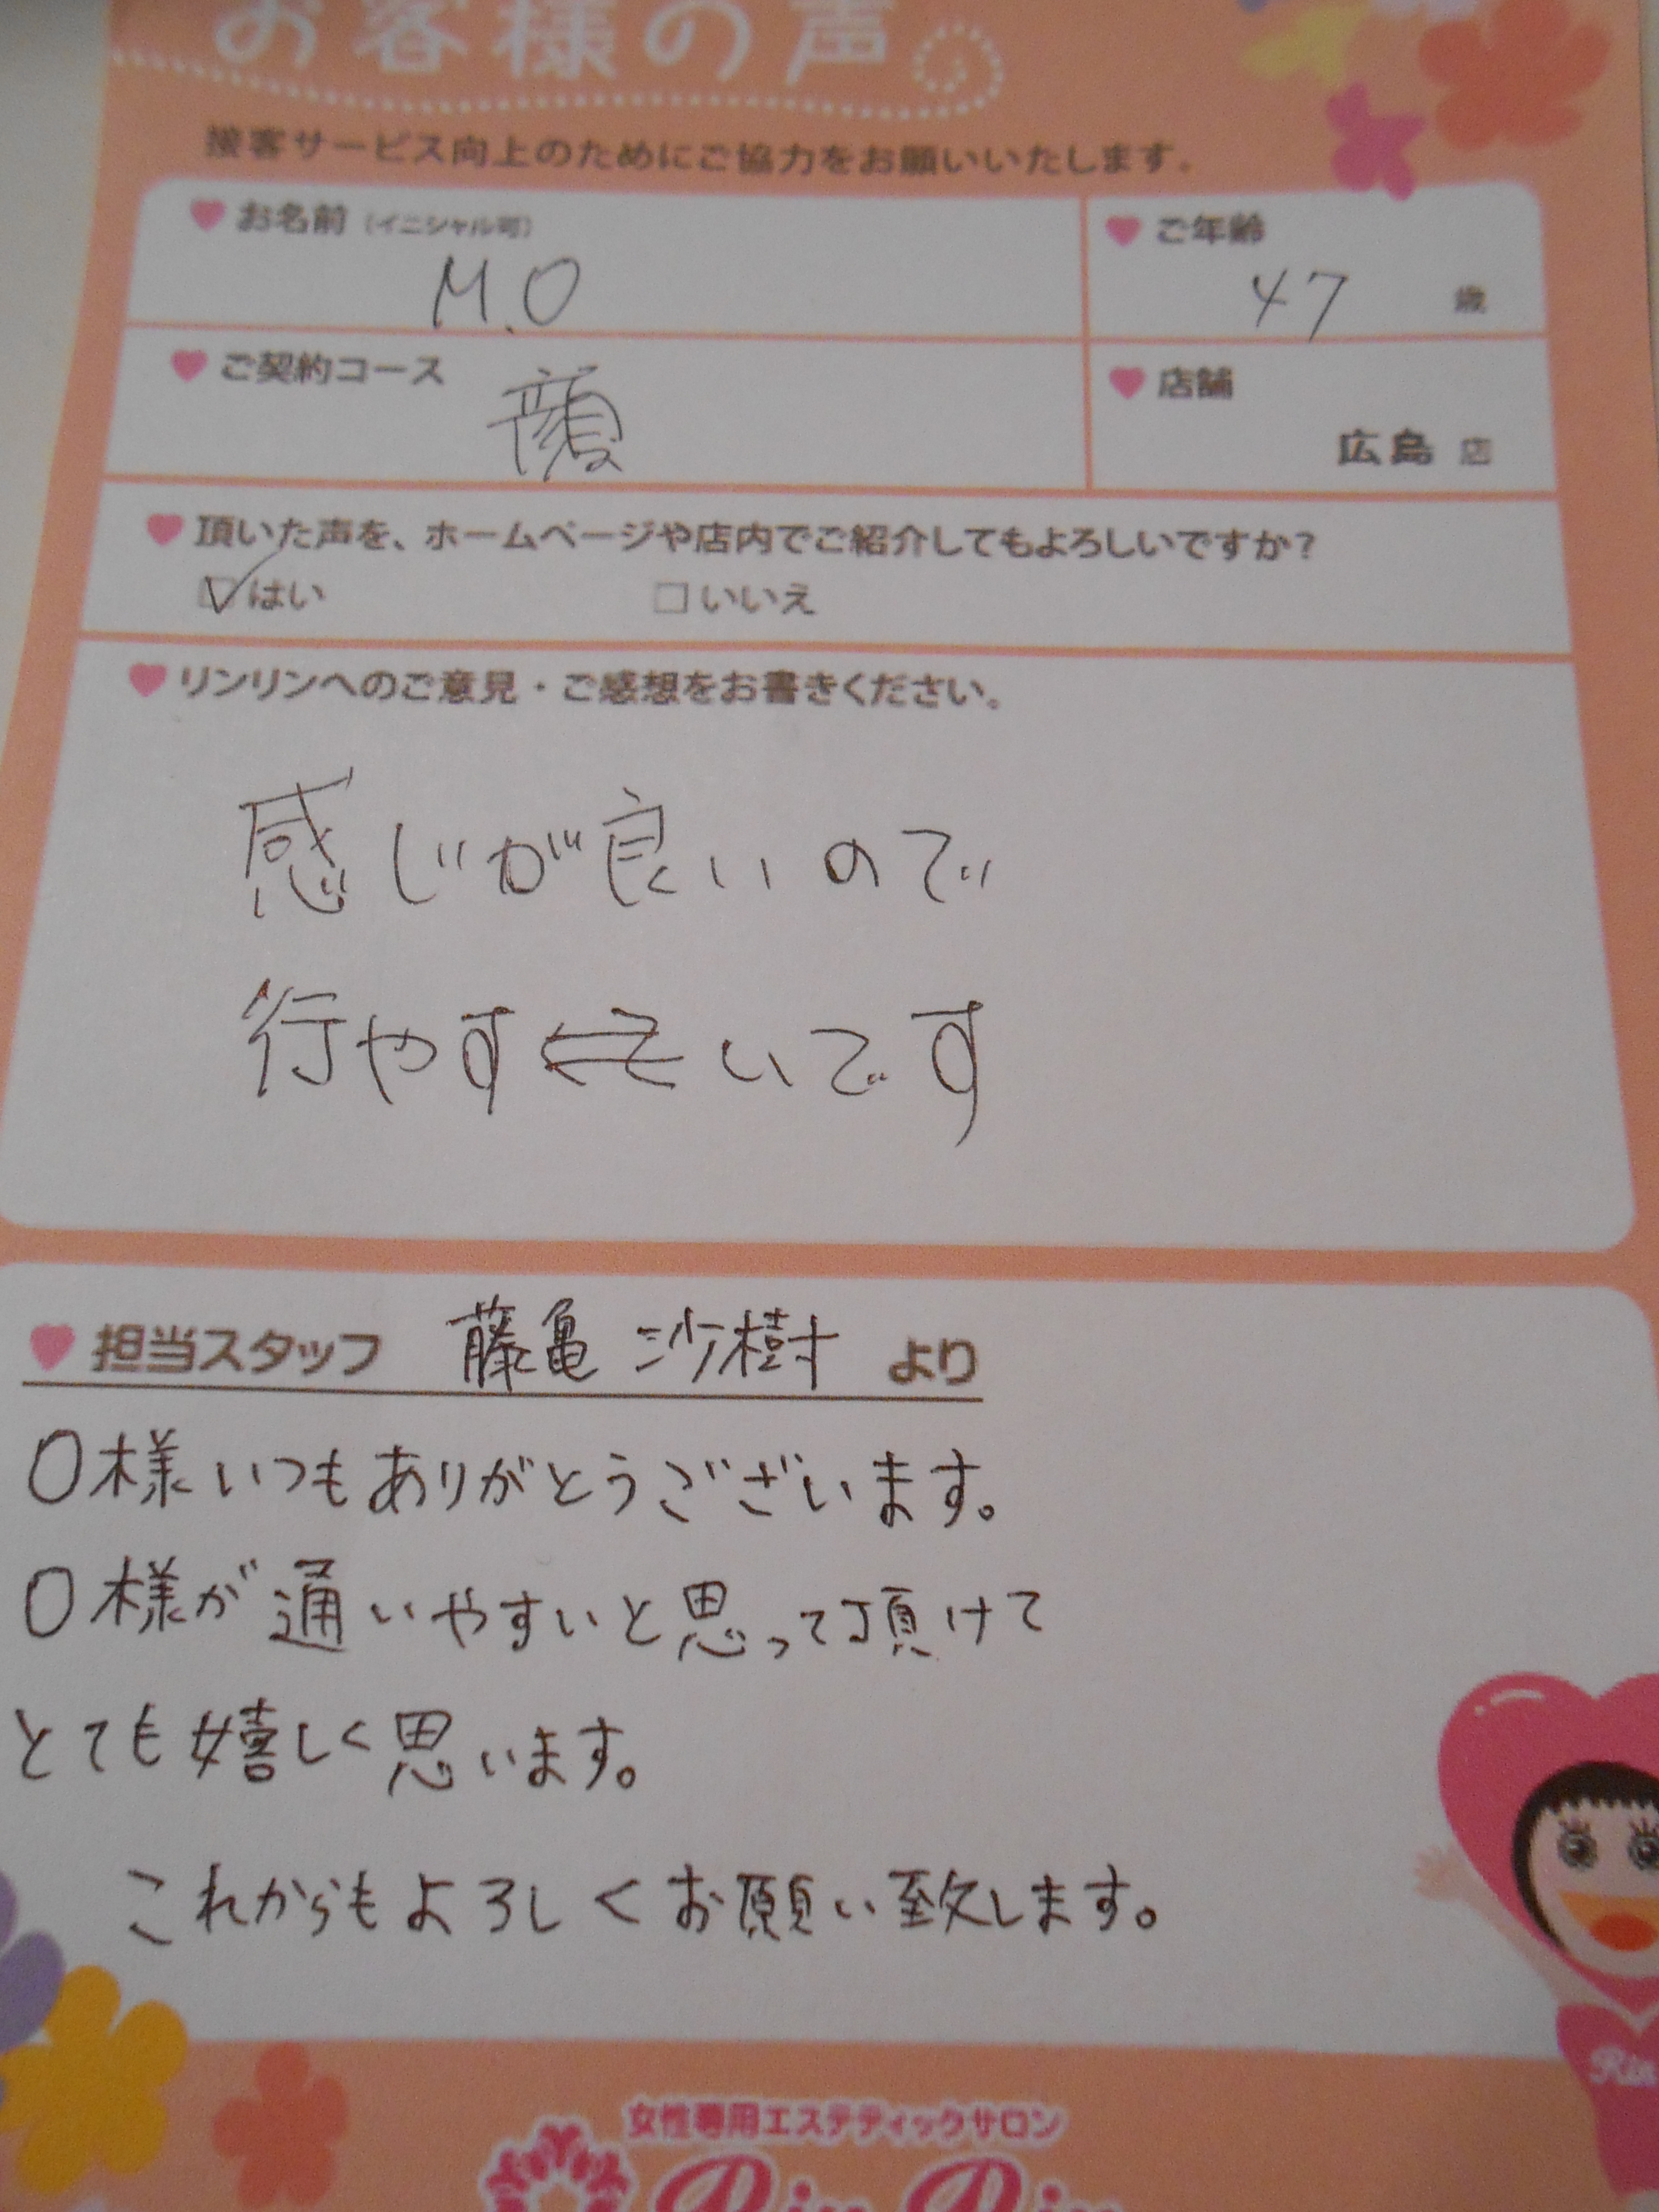 お客様の声
接客サービス向上のためにご協力をお願いいたします。
お名前(イニシャル可)
M.O
ご年齢
47 歳
ご契約コース
顔
店舗
広島 店
頂いた声を、ホームページや店内でご紹介してもよろしいですか?
はい いいえ
リンリンへのご意見・ご感想をお書きください。
感じが良いので
行やすいです
担当スタッフ 藤亀 沙樹 より
O様いつもありがとうございます。
O様が通いやすいと思って頂けて
とても嬉しく思います。
これからもよろしくお願い致します。
Rin
女性専用エステティックサロン
Rin Rin